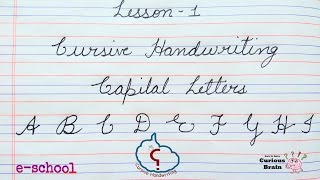 Lesson-1
Cursive Handwriting
Capital Letters
A B C D E F G H I
e-school
Cursive Handwriting
Let's Gain
Curious
Brain